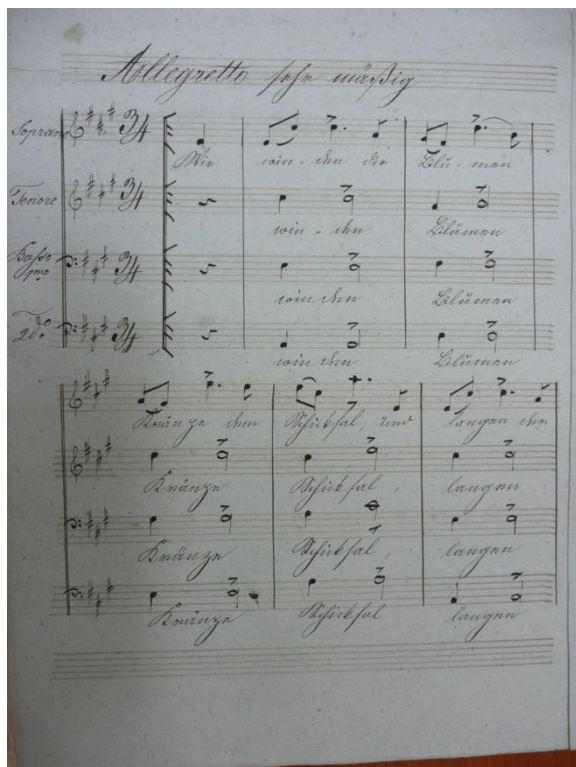 Allegretto sehr mäßig
Soprano
Wir win-den die Blu-men
Tenore
win-den Blumen
Basso 1mo
winden Blumen
2do
winden Blumen
Kränze dem Schicksal, und langen der
Kränze Schicksal, langen
Kränze Schicksal, langen
Kränze Schicksal langen